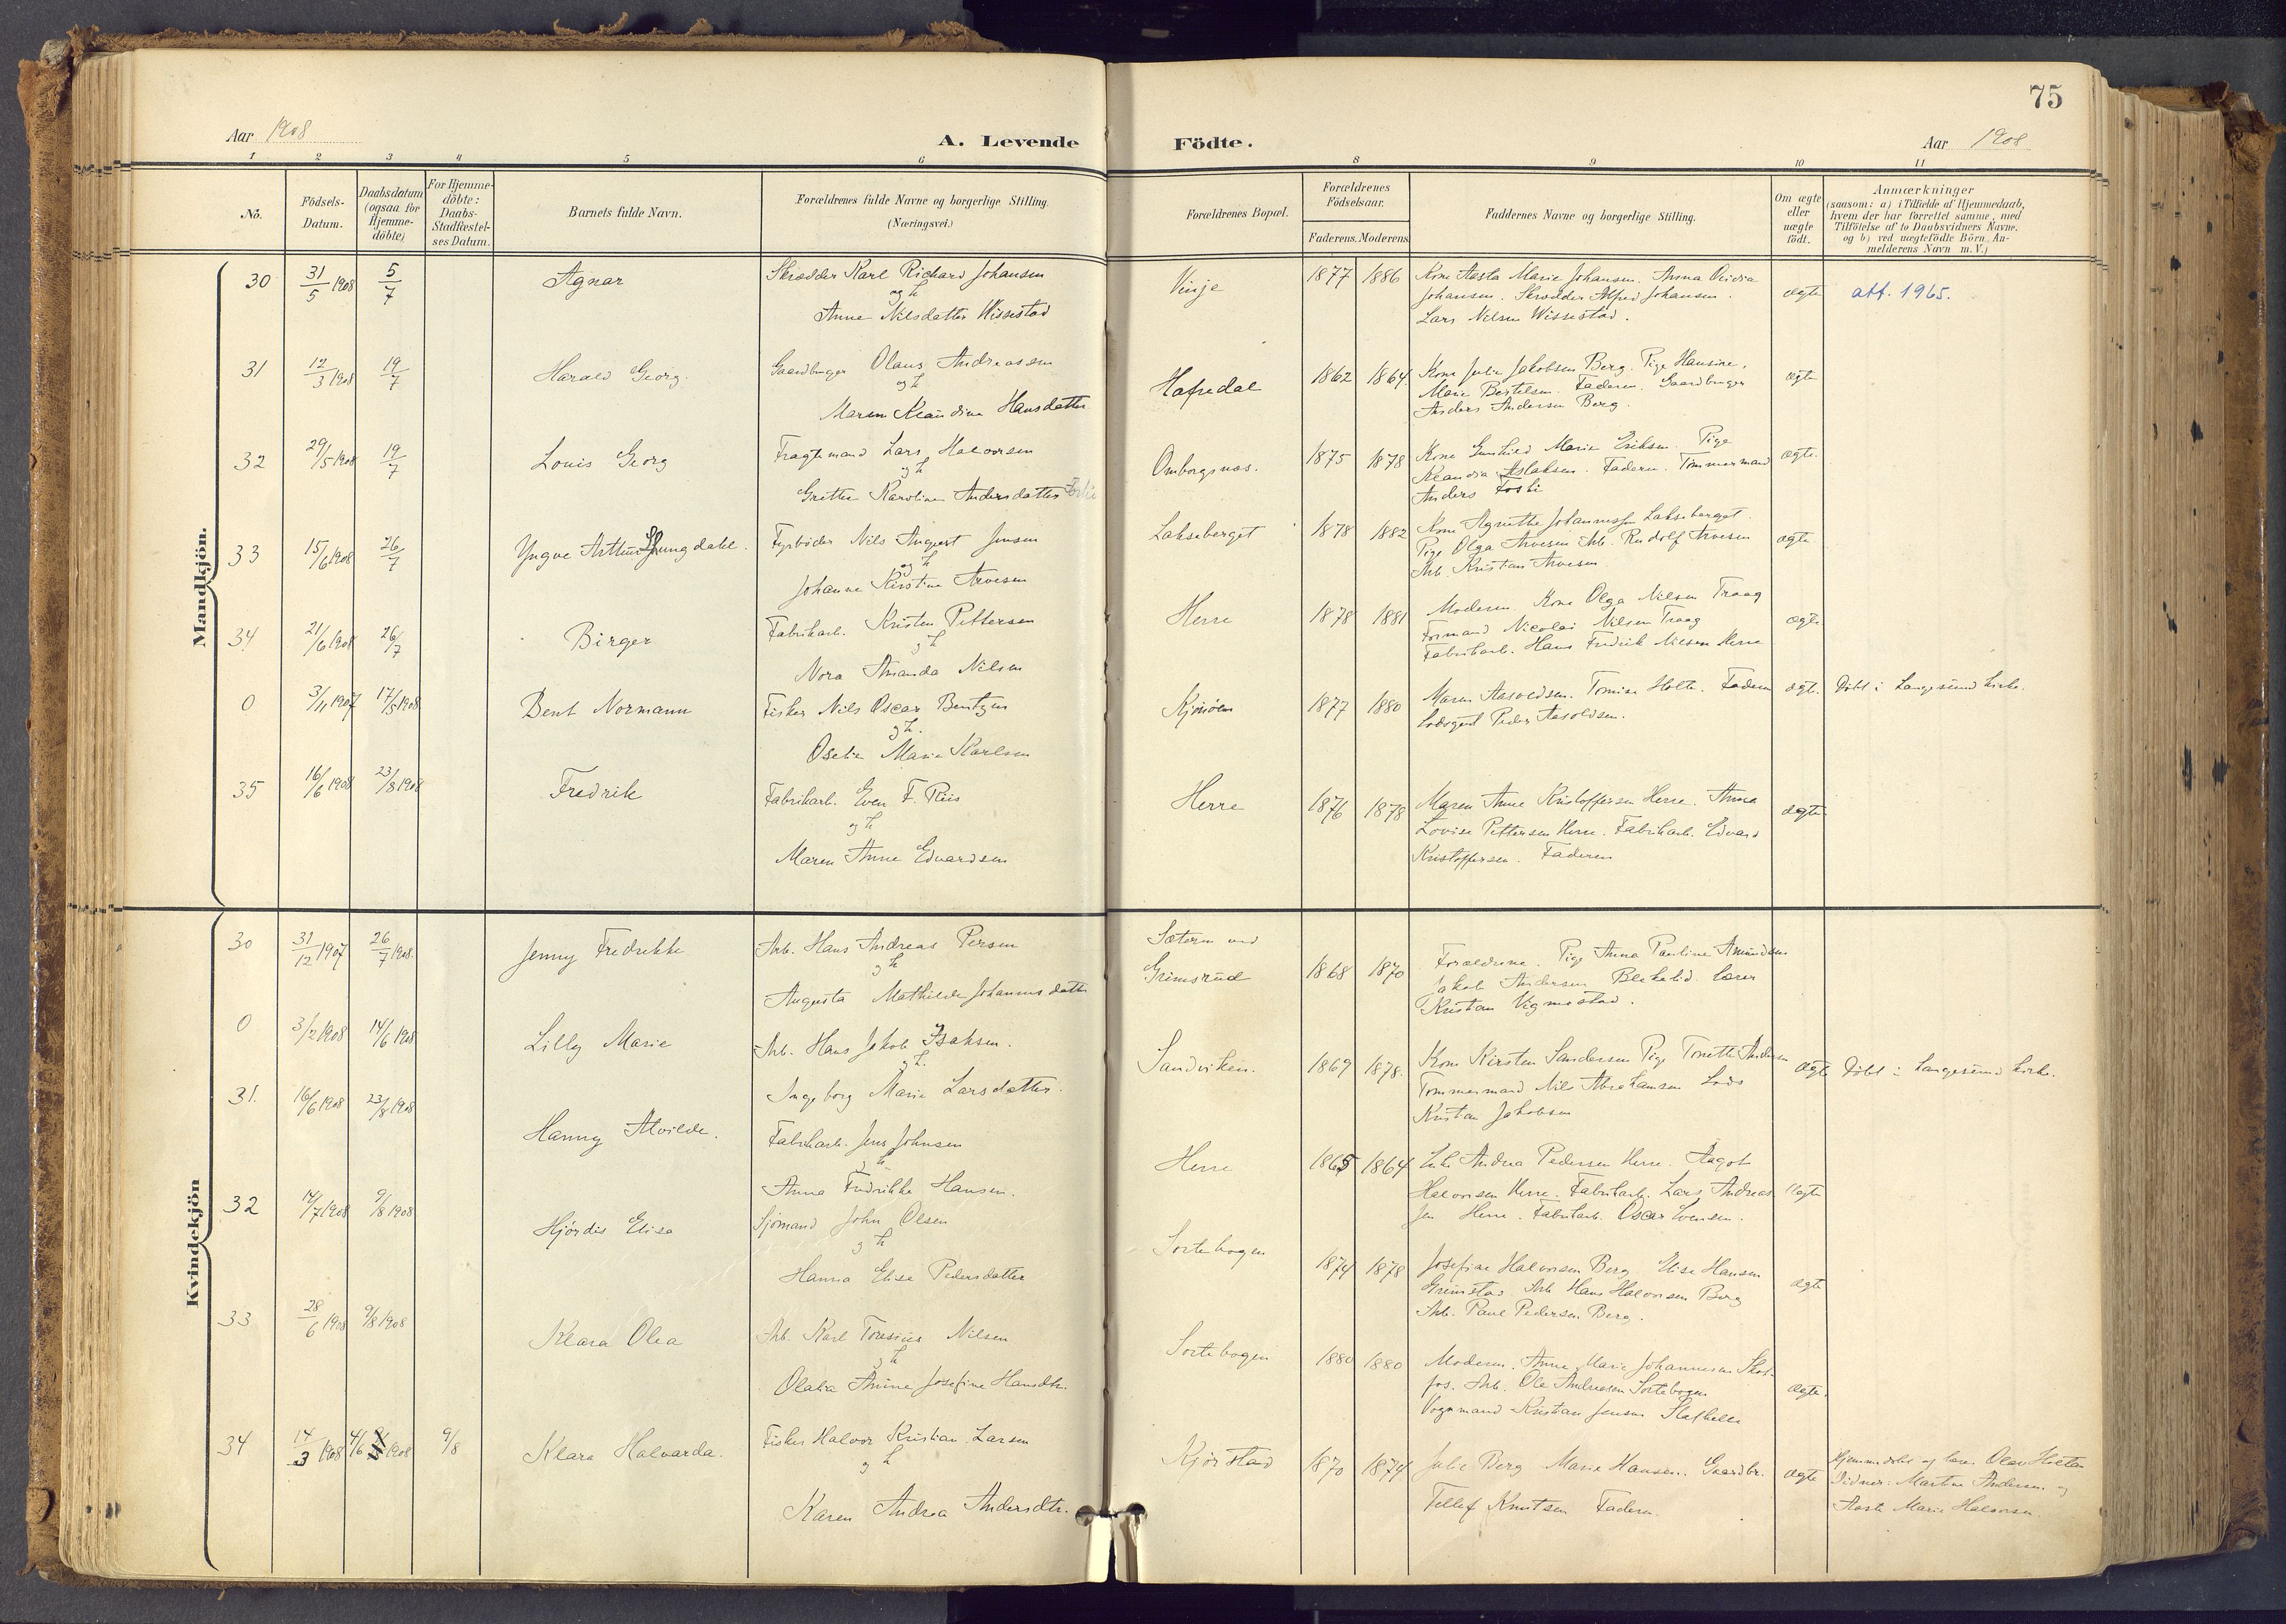 75
Aar 1908
A. Levende Födte.
Aar 1908
1 2 3 4 5 6 8 9 10 11
No.
Födsels-Datum.
Daabsdatum (ogsaa for Hjemme-döbte)
For Hjemme-döbte: Daabs-Stadfæstel-ses Datum.
Barnets fulde Navn.
Forældrenes fulde Navne og borgerlige Stilling.
(Næringsvei.)
Forældrenes Bopæl.
Forældrenes Födselsaar.
Faderens. Moderens.
Faddernes Navne og borgerlige Stilling.
Om ægte eller uægte födt.
Anmærkninger
(saasom: a) i Tilfælde af Hjemmedaab,
hvem der har forrettet samme, med
Tilföielse af to Daabsvidners Navne.
og b) ved uægtefödte Börn An-
melderens Navn m.V.)
Mandkjön.
30 31/5 1908 5/7 Agnar Skrædder Karl Richard Johansen
og h
Anne Nilsdatter Wissestad
Vinje 1877 1886 Kone Aasta Marie Johansen. Anna
Johansen. Skrædder Alfred Johansen.
Lars Nilsen Wissestad.
ægte att. 1965.
31 12/3 1908 19/7 Harald Georg. Gaardbruger Olaus Andreassen
og h
Maren Klaudine Hansdatter
Hafsedal 1862 1864. Kone Julie Jakobsen Berg. Pige Hansine,
Marie Bertelsen. Faderen. Gaardbruger
Anders Andersen Berg.
ægte
32 29/5 1908 19/7 Louis Georg Fragtemand Lars Halvorsen
og h
Grethe Karoline Andersdatter
Omborgsnes. 1875 1878 Kone Gunhild Marie Eriksen. Pige
Klaudia Aslaksen. Faderen. Tømmermand
Anders
ægte.
33 15/6 1908 26/7 Yngve Arthur Ljungdahl. Fyrbøder Nils August Jensen
og h
Johanne Kirstine Arvesen
Lakseberget 1878 1882 Kone Agnethe Johannessen Lakseberget.
Pige Olga Arvesen Arb. Rudolf Arvesen
Arb. Kristian Arvesen
ægte
34 21/6 1908 26/7 Birger Fabrikarb. Kristen Pettersen
og h
Nora Amanda Nilsen
Herre 1878 1881 Moderen. Kone Olga Nilsen Traag
Formand Nicolai Nilsen Traag
Fabrikarb. Hans Fredrik Nilsen Herre
ægte
0 3/11 1907 17/5 1908 Bent Normann Fisker Nils Oscar Bentzen
og h.
Oselie Marie Karlsen
1877 1880 Maren Aasoldsen. Tomine Holte. Faderen
Lodsgut Peder Aasoldsen.
ægte. Döbt i Langesund kirke.
35 16/6 1908 23/8 1908 Fredrik Fabrikarb. Even F. Riis
og h
Maren Anne Edvardsen
Herre 1876 1878 Maren Anne Kristoffersen Herre. Anna
Lovise Pettersen Herre. Fabrikarb. Edvard
Kristoffersen. Faderen
ægte
Kvindekjön
30 31/12 1907 26/7 1908. Jenny Fredrikke Arb. Hans Andreas Persen
og h
Augusta Mathilde Johannesdatter
Sæteren ved
Grimsrud 1868 1870 Forældrene. Pige Anna Pauline Amundsen
Jakob Andersen Blekelid. Lærer
Kristian Vigmostad.
0 3/2 1908 14/6 1908 Lilly Marie Arb. Hans Jakob Isaksen.
og h.
Ingeborg Marie Larsdatter.
Sandviken. 1869 1878. Kone Kirsten Sandersen Pige Tonette Andersen
Tømmermand Nils Abrahamsen Lods
Kristian Jakobsen
ægte Döbt i Langesund kirke.
31. 16/6 1908 23/8 1908 Hanny Alvilde. Fabrikarb. Jens Johnsen
og h
Anna Fredrikke Hansen.
Herre 1865 1864 Enke Andrea Pedersen Herre. Aagot
Halvorsen Herre. Fabrikarb. Lars Andreas-
sen Herre. Fabrikarb. Oscar Evensen.
Ægte
32 14/7 1908 9/8 1908 Hjördis Elise Sjömand John Olsen
og h
Hanna Elise Pedersdatter
Sortebogen 1874 1878 Josefine Halvorsen Berg Elise Hansen
Grimstad. Arb. Hans Halvorsen Berg
Arb. Paul Pedersen Berg.
ægte
33 28/6 1908 9/8 1908 Klara Olea Arb. Karl Torsius Nilsen
og h
Olalia Amine Josefine Hansdtr.
Sortebogen 1880 1880 Moderen. Anne Marie Johannesen Skos-
fos. Arb. Ole Andreasen Sortebogen
Vognmand Kristian Jensen Stathelle
ægte.
34 14/3 1908 4/6 1908 9/8 Klara Halvarda. Fisker Halvor Kristian Larsen
og h
Karen Andrea Andersdtr.
Kjørstad 1870 1874 Julie Berg Marie Hansen. Gaardbr.
Tellef Knutsen Faderen.
ægte Hjemmedöbt af lærer Olav
Vidner: Martine Andersen og
Aaste Marie Halvorsen